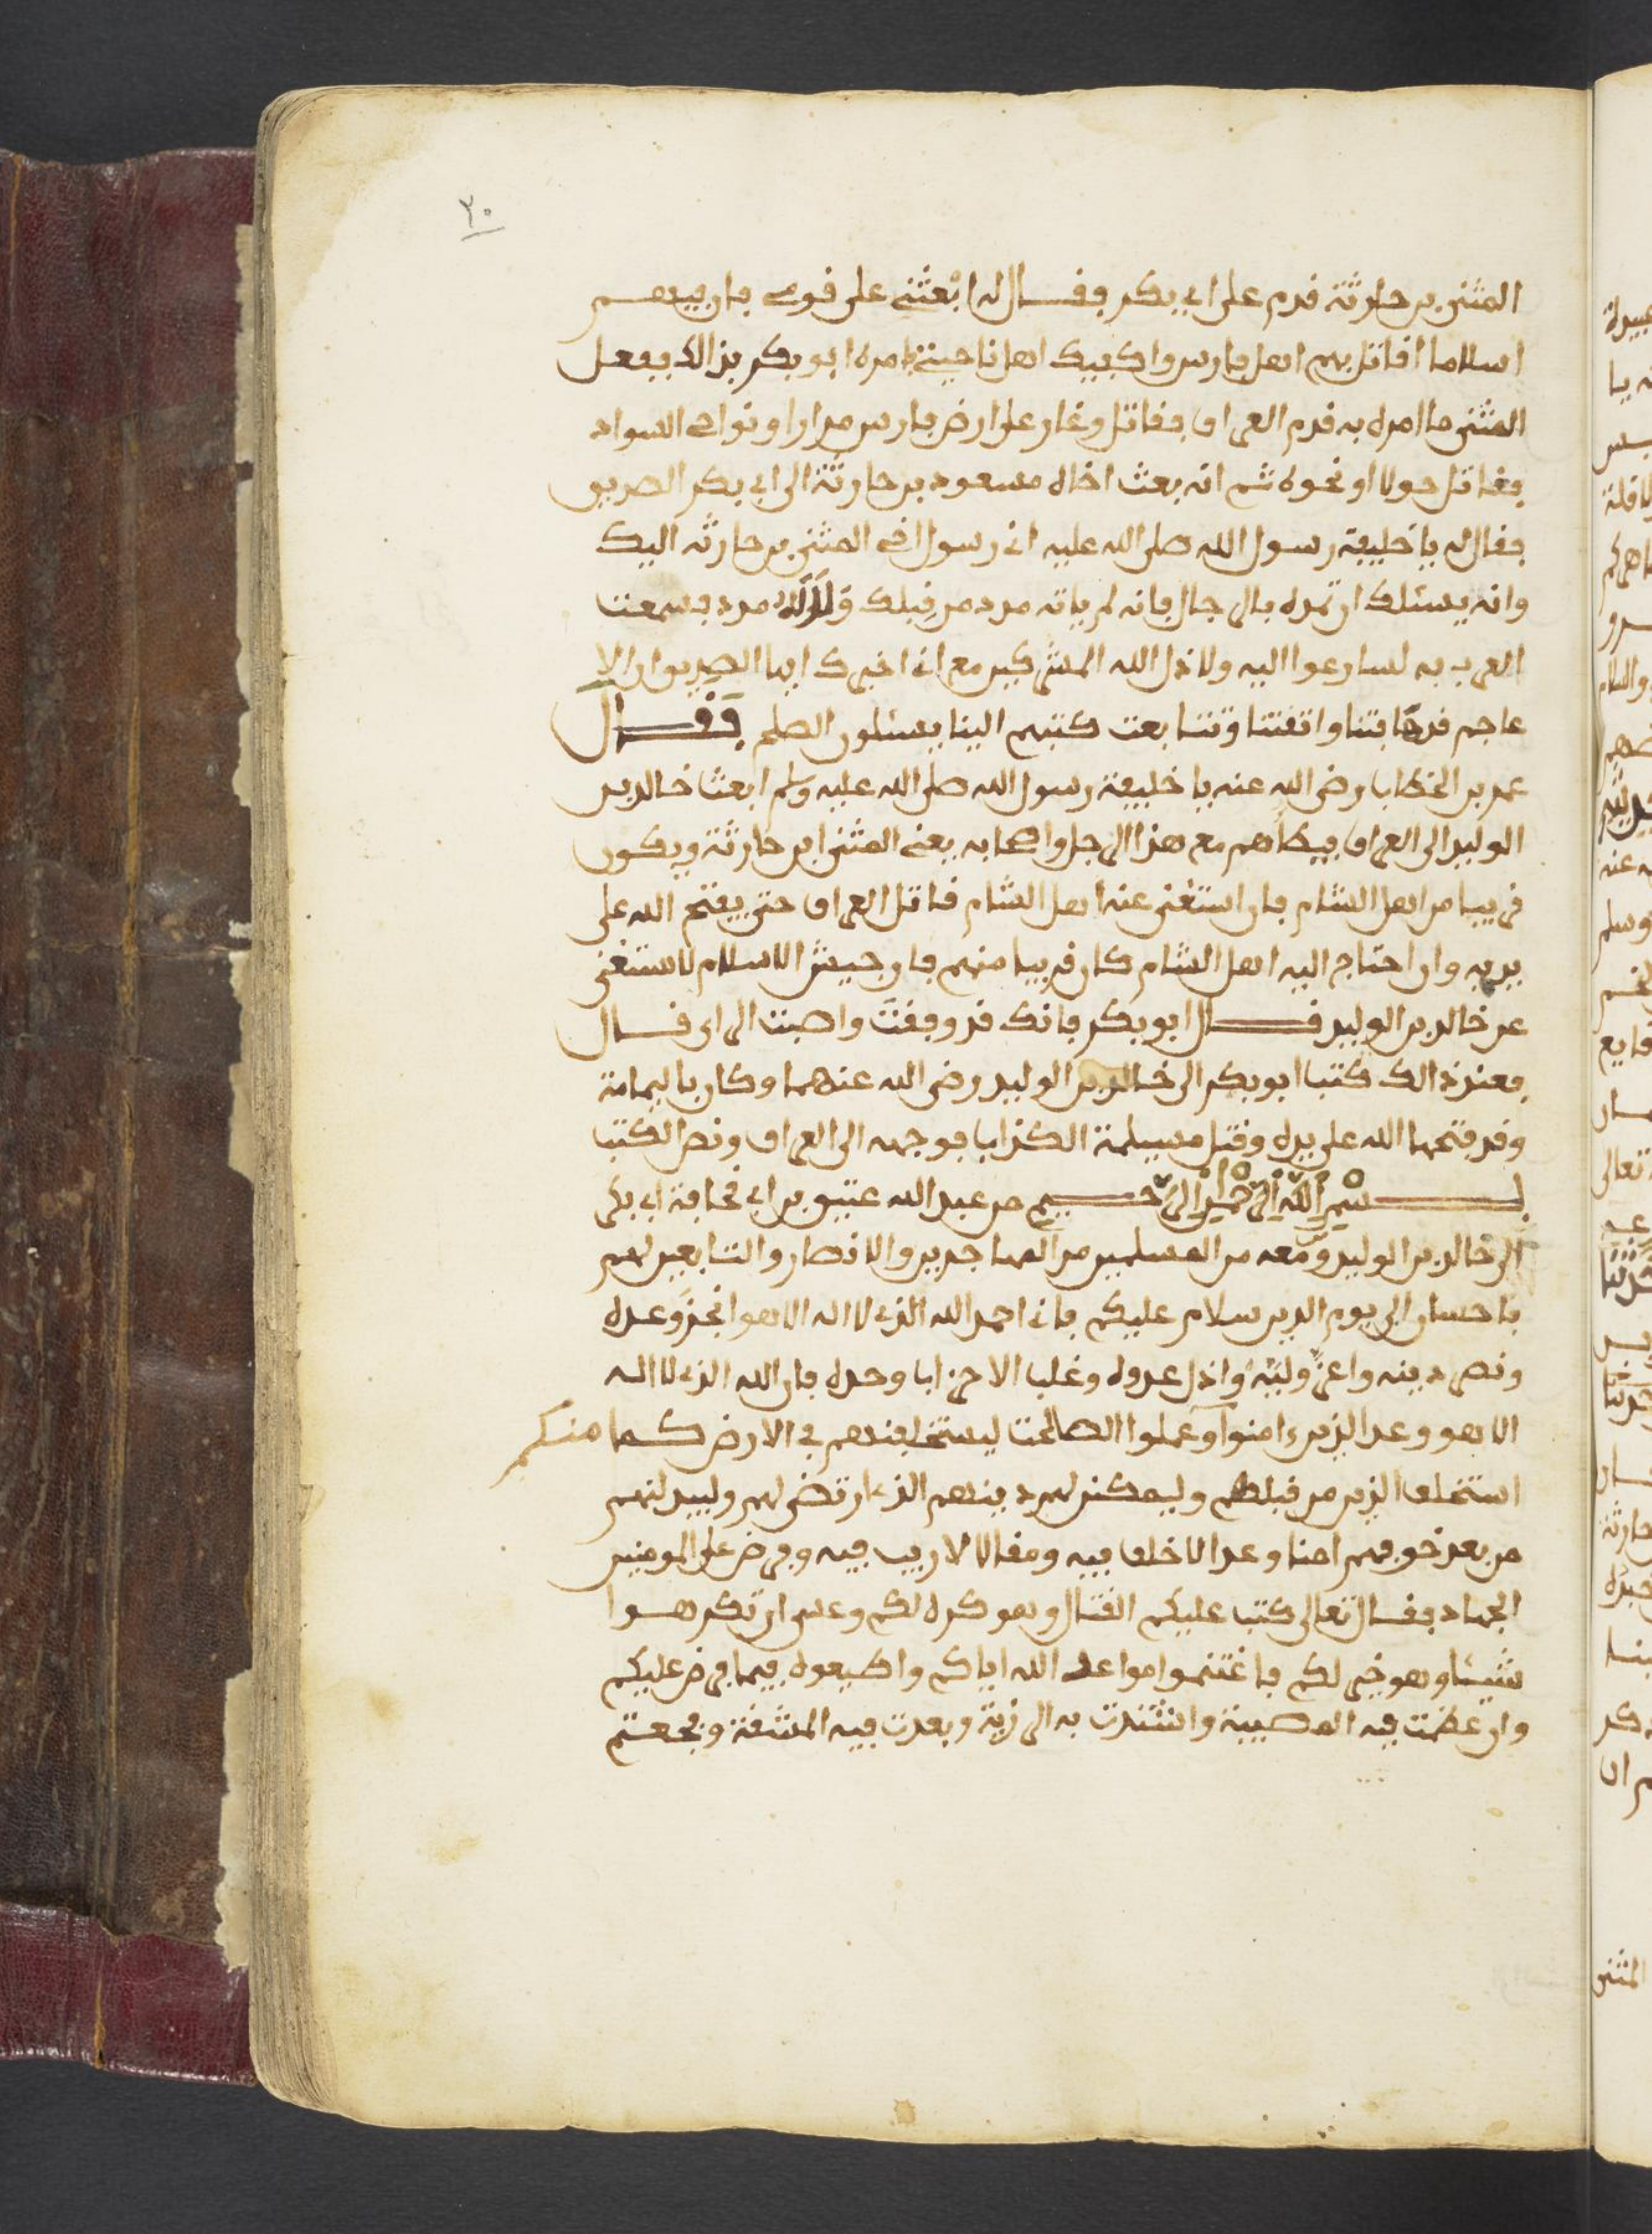 ٢٠
المثنى بن حارثة قدم على ابي بكر فقال له ابْعثني على قومي فان فيهم
اسلاما اقاتل بهم اهل فارس واكفيك اهل ناحيتي فامره ابو بكر بذالك ففعل
المثنى ما امره به قدم العراق فقاتل وغار على ارض فارس مرارا ونواحي السواد
فقاتل حولا او نحوه ثم انه بعث اخاه مسعود بن حارثة الى ابي بكر الصديق
فقال له يا خليفة رسول الله صلى الله عليه اني رسول اخي المثنى بن حارثه اليك
وانه يسئلك ان تمده بالرجال فانه لم ياته مدد من قِبلك ولو اتاه مدد فسمعت
العرب به لسارعوا اليه ولاذل الله المشركين مع اني اخبرك ايها الصديق ان الا
عاجم قد خافتنا واتقتنا وتتابعت كتبهم الينا يسئلون الصلح فَقَال
عمر بن الخطاب رضي الله عنه يا خليفة رسول الله صلى الله عليه وسلم ابعث خالد بن
الوليد الى العراق فيطاهم مع هذا الرجل واصحابه يعني المثنى ابن حارثة ويكون
قريبا من اهل الشام فان استغنى عنه اهل الشام قاتل العراق حتى يفتح الله على
يديه وان احتاج اليه اهل الشام كان قريبا منهم فان جيش الاسلام لا ستغنى
عن خالد بن الوليد قال ابو بكر فانك قد وفقتَ واصبت الراي قال
فعند ذالك كتب ابو بكر الى خالد بن الوليد رضي الله عنهما وكان باليمامة
وقد فتحها الله على يده وقتل مسيلمة الكذاب فوجهه الى العراق ونص الكتب
بسْمِ اِللَّهِ اِلرَّحْمَٰنِ اِلرَّحِيمِ من عبد الله عتيق بن ابي قحافة ابي بكر
الى خالد بن الوليد ومَن معه من المسلمين من المهاجرين والانصار والتابعين لهم
باحسان الى يوم الدين سلام عليكم فاني احمد الله الذي لا اله الا هو انجزَ وعده
ونصر دينه واعزَّ وليَّهُ واذل عدوه وغلب الاحزاب وحده فان الله الذي لا اله
الا هو وعد الذين ءامنوا وعملوا الصلحت ليستخلفنهم في الارض كما منكم
استخلف الذين من قبلهم وليمكنن لهم دينهم الذي ارتضى لهم وليبدلنهم
من بعد خوفهم امنا وعدا لا خلف فيه ومقالا لا ريب فيه وفرض على المومنين
الجهاد فقال تعالى كتب عليكم القتال وهو كره لكم وعسى ان تكرهوا
شيئا وهو خير لكم فاغتنموا مواعد الله اياكم واطيعوه فيما فرض عليكم
وان عظمت فيه المصيبة واشتدت به الرزية وبعدت فيه المشقة وفجعتم